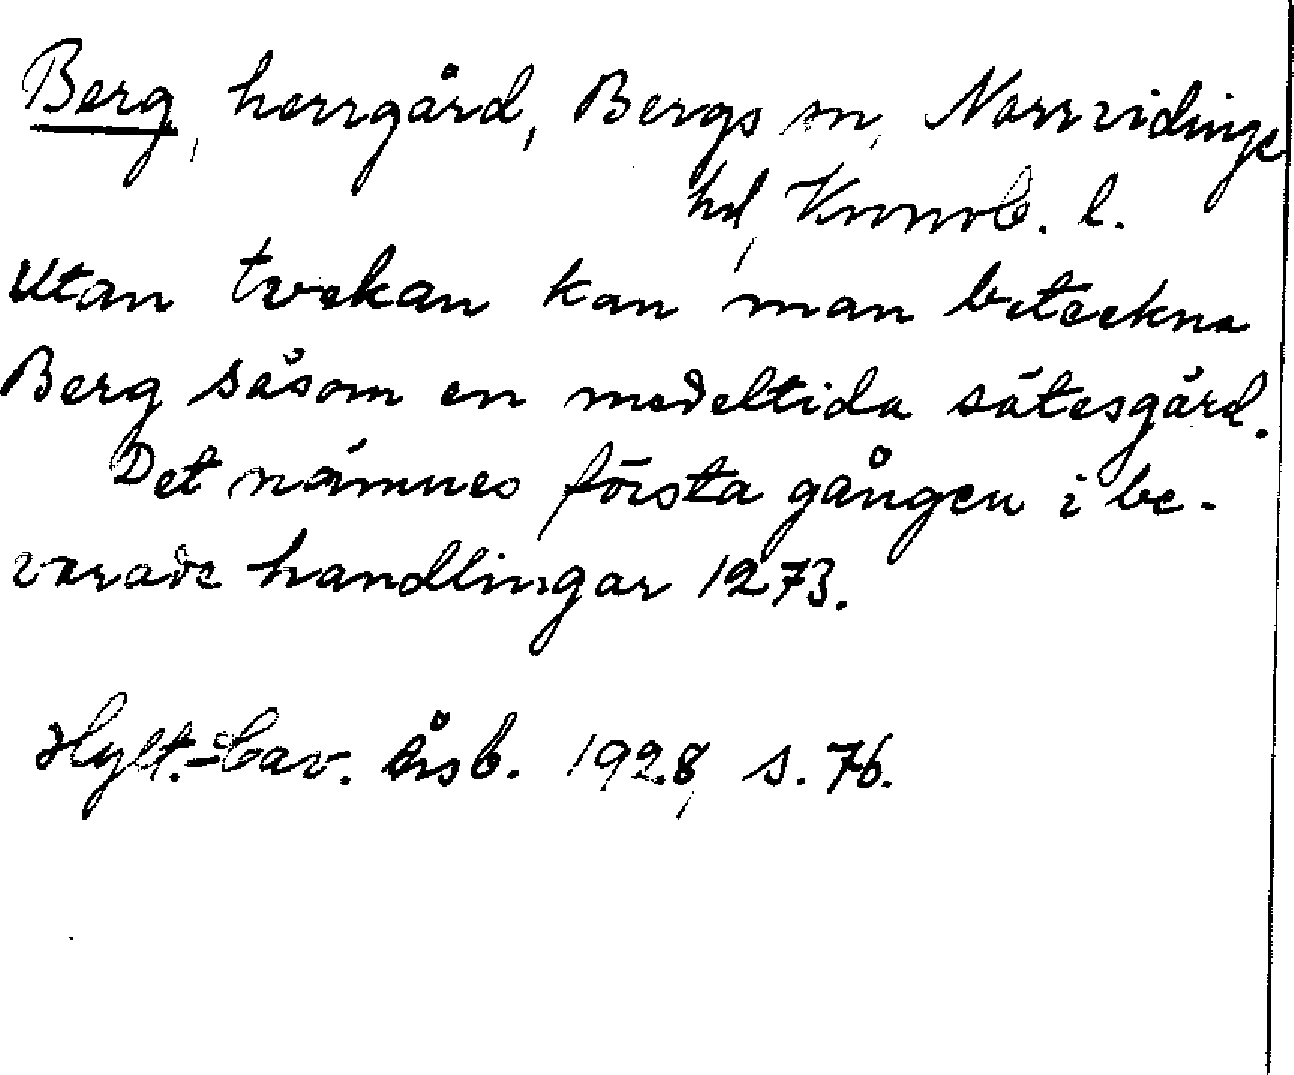 Berg, herrgård, Bergs sn, Norrvidinge
hd, Kronob. l.
Utan tvekan kan man beteckna
Berg såsom en medeltida sätesgård.
Det nämnes första gången i be-
varade handlingar 1273.
Hylt.-Cav. årsb. 1928, s. 76.